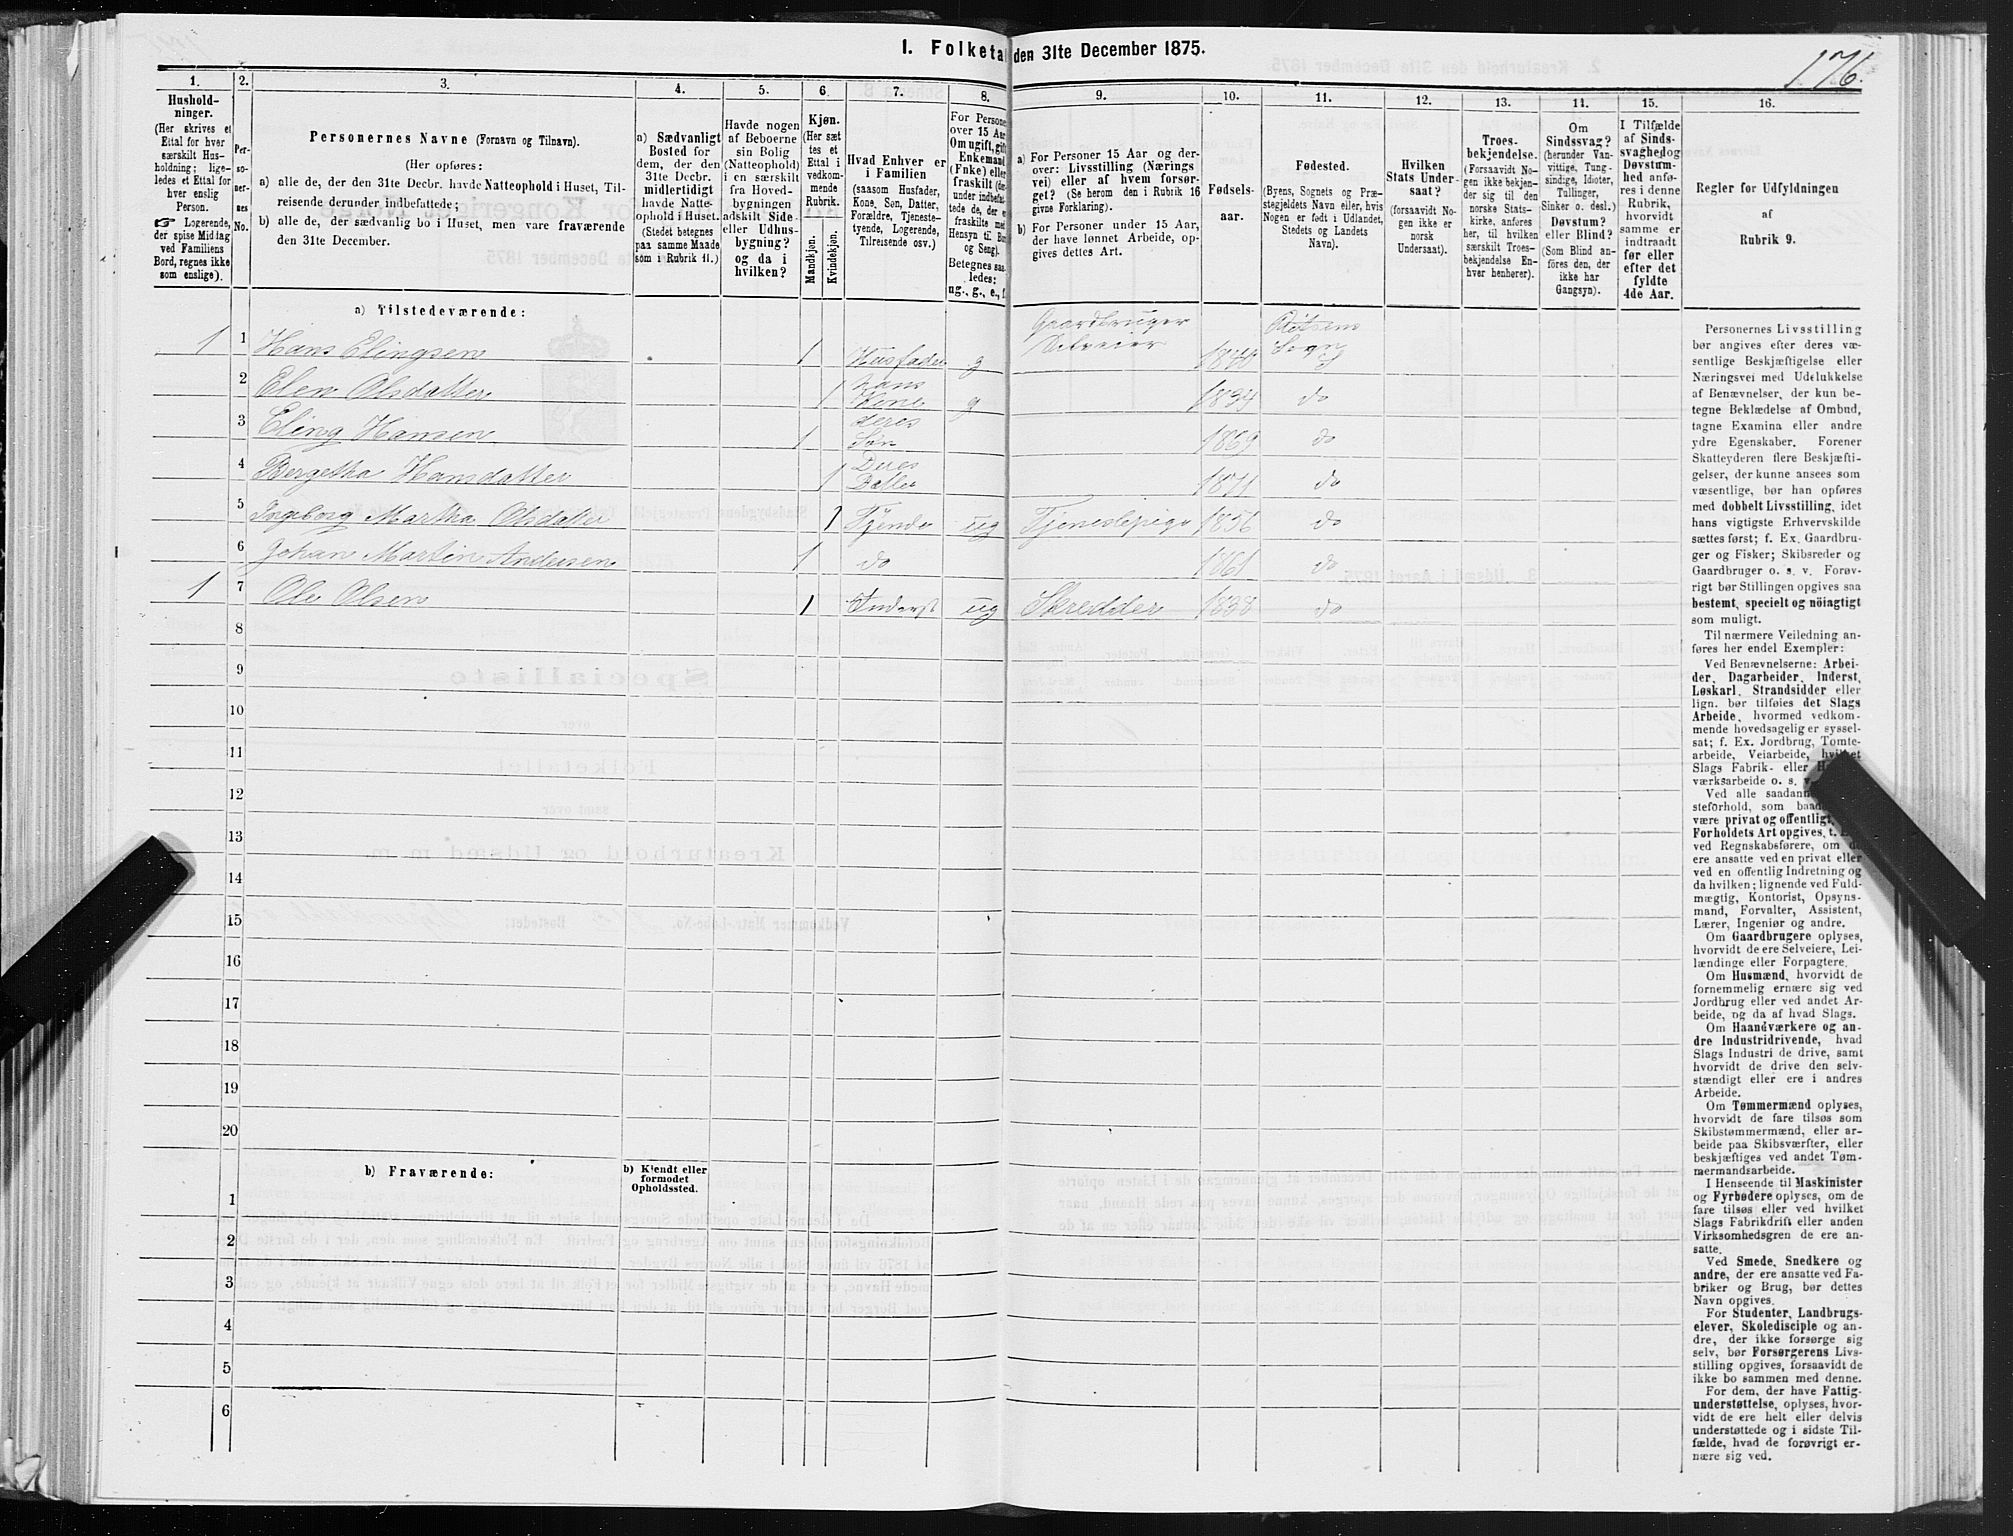 I. Folketal den 31te December 1875.
176.
1. 2. 3. 4. 5. 6. 7. 8. 9. 10. 11. 12. 13. 14. 15. 16.
Hushold-
ninger.
(Her skrives et
Ettal for hver
særskilt Hus-
holdning; lige-
ledes et Ettal for
hver enslig
Person.
☞ Logerende,
der spise Middag
ved Familiens
Bord, regnes ikke
som enslige).
Per-
so-
ner-
nes
No.
Personernes Navne (Fornavn og Tilnavn).
(Her opføres:
a) alle de, der den 31te Decbr. havde Natteophold i Huset, Til-
reisende derunder indbefattede;
b) alle de, der sædvanlig bo i Huset, men vare fraværende
den 31te December.
a) Sædvanligt
Bosted for
dem, der den
31te Decbr.
midlertidigt
havde Natte-
ophold i Huset.
(Stedet betegnes
paa samme Maade
som i Rubrik 11.)
Havde nogen
af Beboerne
sin Bolig
(Natteophold)
i en særskilt
fra Hoved-
bygningen
adskilt Side-
eller Udhus-
bygning?
og da i
hvilken?
Kjøn.
(Her sæt-
tes et
Ettal i
vedkom-
mende
Rubrik.
Mandkjøn.
Kvindekjøn.
Hvad Enhver er
i Familien
(saasom Husfader,
Kone, Søn, Datter,
Forældre, Tjeneste-
tyende, Logerende,
Tilreisende osv.)
For Personer
over 15 Aar:
Om ugift, gift
Enkemand
(Enke) eller
fraskilt (der-
under indbefat-
tede de, der er
fraskilte med
Hensyn til Bord
og Seng).
Betegnes saa-
ledes:
ug., g., e., f.
a) For Personer 15 Aar og der-
over: Livsstilling (Nærings
vei) eller af hvem forsør-
get? (Se herom den i Rubrik 16
givne Forklaring).
b) For Personer under 15 Aar,
der have lønnet Arbeide, op-
gives dettes Art.
Fødsels-
aar.
Fødested.
(Byens, Sognets og Præ-
stegjeldets Navn eller, hvis
Nogen er født i Udlandet,
Stedets og Landets
Navn).
Hvilken
Stats Under-
saat?
(forsaavidt No-
gen ikke er
norsk
Undersaat).
Troes-
bekjendelse.
(Forsaavidt No-
gen ikke bekjen-
der sig til den
norske Stats-
kirke, anføres
her, til hvilken
særskilt Troes-
bekjendelse En-
hver henhører).
Om
Sindssvag?
(herunder Van-
vittige, Tung-
sindige, Idioter,
Tullinger,
Sinker o. desl.)
Døvstum?
eller Blind?
(Som Blind an-
føres den, der
ikke har
Gangsyn).
I Tilfælde
af Sinds-
svaghed og
Døvstum-
hed anfø-
res i denne
Rubrik,
hvorvidt
samme er
indtraadt
før eller
efter det
fyldte
4de Aar.
Regler for Udfyldningen
af
Rubrik 9.
a) Tilstedeværende:
1 1 Hans Elingsen 1 Husfader g Gaardbruger Selveier Sogn
2 Elen Olsdatter 1 hans Kone g 1834 do
3 Eling Hansen 1 deres Søn 1869 do
4 Bergetha Hansdatter 1 Deres Datter 1871 do
5 Ingeborg Martha Olsdatter 1 Tjende ug Tjenestepige 1856 do
6 Johan Martin Andersen 1 do 1861 do
1 7 Ole Olsen 1 Inderst ug Skredder 1838 do
8
9
10
11
12
13
14
15
16
17
18
19
20
b) Fraværende:
b) Kjendt eller
formodet
Opholdssted.
1
2
3
4
5
6
Personernes Livsstilling
bør angives efter deres væ-
sentlige Beskjæftigelse eller
Næringsvei med Udelukkelse
af Benævnelser, der kun be-
tegne Beklædelse af Ombud,
tagne Examina eller andre
ydre Egenskaber. Forener
Skatteyderen flere Beskjæfti-
gelser, der kunne ansees som
væsentlige, bør han opføres
med dobbelt Livsstilling, idet
hans vigtigste Erhvervskilde
sættes først; f. Ex. Gaardbru-
ger og Fisker; Skibsreder og
Gaardbruger o. s. v. Forøv-
rigt bør Stillingen opgives saa
bestemt, specielt og nöiagtigt
som muligt.
Til nærmere Veiledning an-
føres her endel Exempler:
Ved Benævnelserne: Arbei-
der, Dagarbeider, Inderst,
Løskarl, Strandsidder eller
lign. bør tilføies det Slags
Arbeide, hvormed vedkom-
mende hovedsagelig er syssel-
sat; f. Ex. Jordbrug, Tomte-
arbeide, Veiarbeide, hvilket
Slags Fabrik- eller
værksarbeide o. s.
Ved alle saadan
steforhold, som
være privat og offentligt,
Forholdets Art opgives, t.
ved Regnskabsførere, om de
ere ansatte ved en privat eller
ved en offentlig Indretning og
da hvilken; lignende ved Fuld-
mægtig, Kontorist, Opsyns-
mand, Forvalter, Assistent,
Lærer, Ingeniør og andre.
Om Gaardbrugere oplyses,
hvorvidt de ere Selveiere, Lei-
lændinge eller Forpagtere.
Om Husmænd, hvorvidt de
fornemmelig ernære sig ved
Jordbrug eller ved andet Ar-
beide, og da af hvad Slags.
Om Haandværkere og an-
dre Industridrivende, hvad
Slags Industri de drive, samt
hvorvidt de drive den selv-
stændigt eller ere i andres
Arbeide.
Om Tømmermænd oplyses,
hvorvidt de fare tilsøs som
Skibstømmermænd, eller ar-
beide paa Skibsværfter, eller
beskjæftiges ved andet Tøm-
mermandsarbeide.
I Henseende til Maskinister
og Fyrbødere oplyses, om de
fare tilsøs eller ved hvilket
Slags Fabrikdrift eller anden
Virksomhedsgren de ere an-
satte.
Ved Smede, Snedkere og
andre, der ere ansatte ved Fa-
briker og Brug, bør dettes
Navn opgives.
For Studenter, Landbrugs-
elever, Skoledisciple og an-
dre, der ikke forsørge sig
selv, bør Forsørgerens Livs-
stilling opgives, forsaavidt de
ikke bo sammen med denne.
For dem, der have Fattig-
understøttelse, oplyses, hvor-
vidt de ere helt eller delvis
understøttede og i sidste Til-
fælde, hvad de forøvrigt er-
nære sig ved.